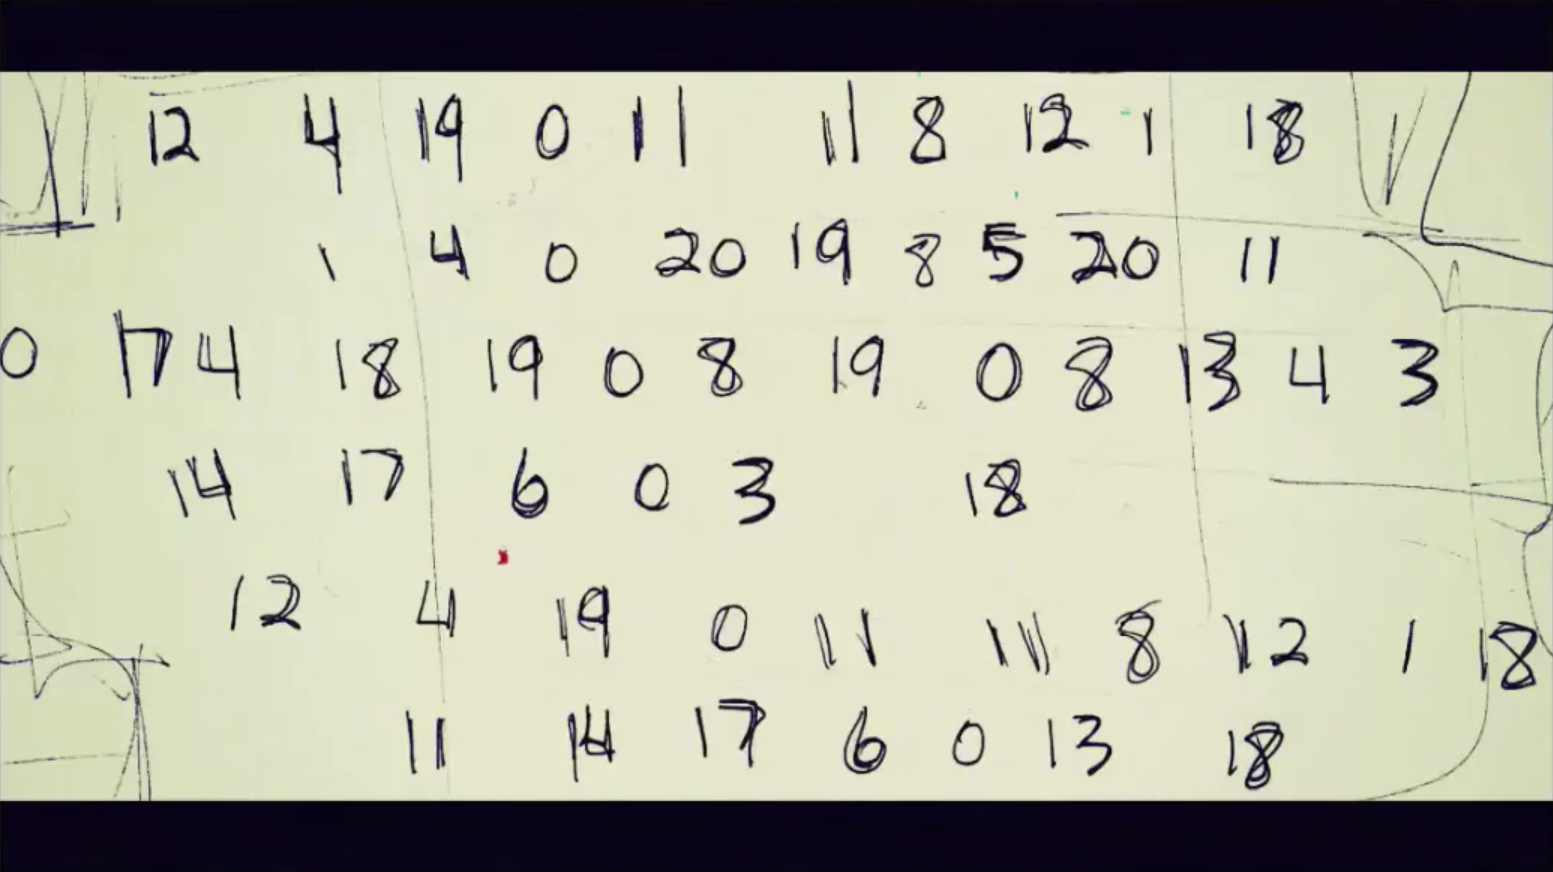 12 4 19 0 11 11 8 12 1 18
1 4 0 20 19 8 5 20 11
0 17 4 18 19 0 8 19 0 8 13 4 3
14 17 6 0 3 18
12 4 19 0 11 11 8 12 1 18
11 14 17 6 0 13 18